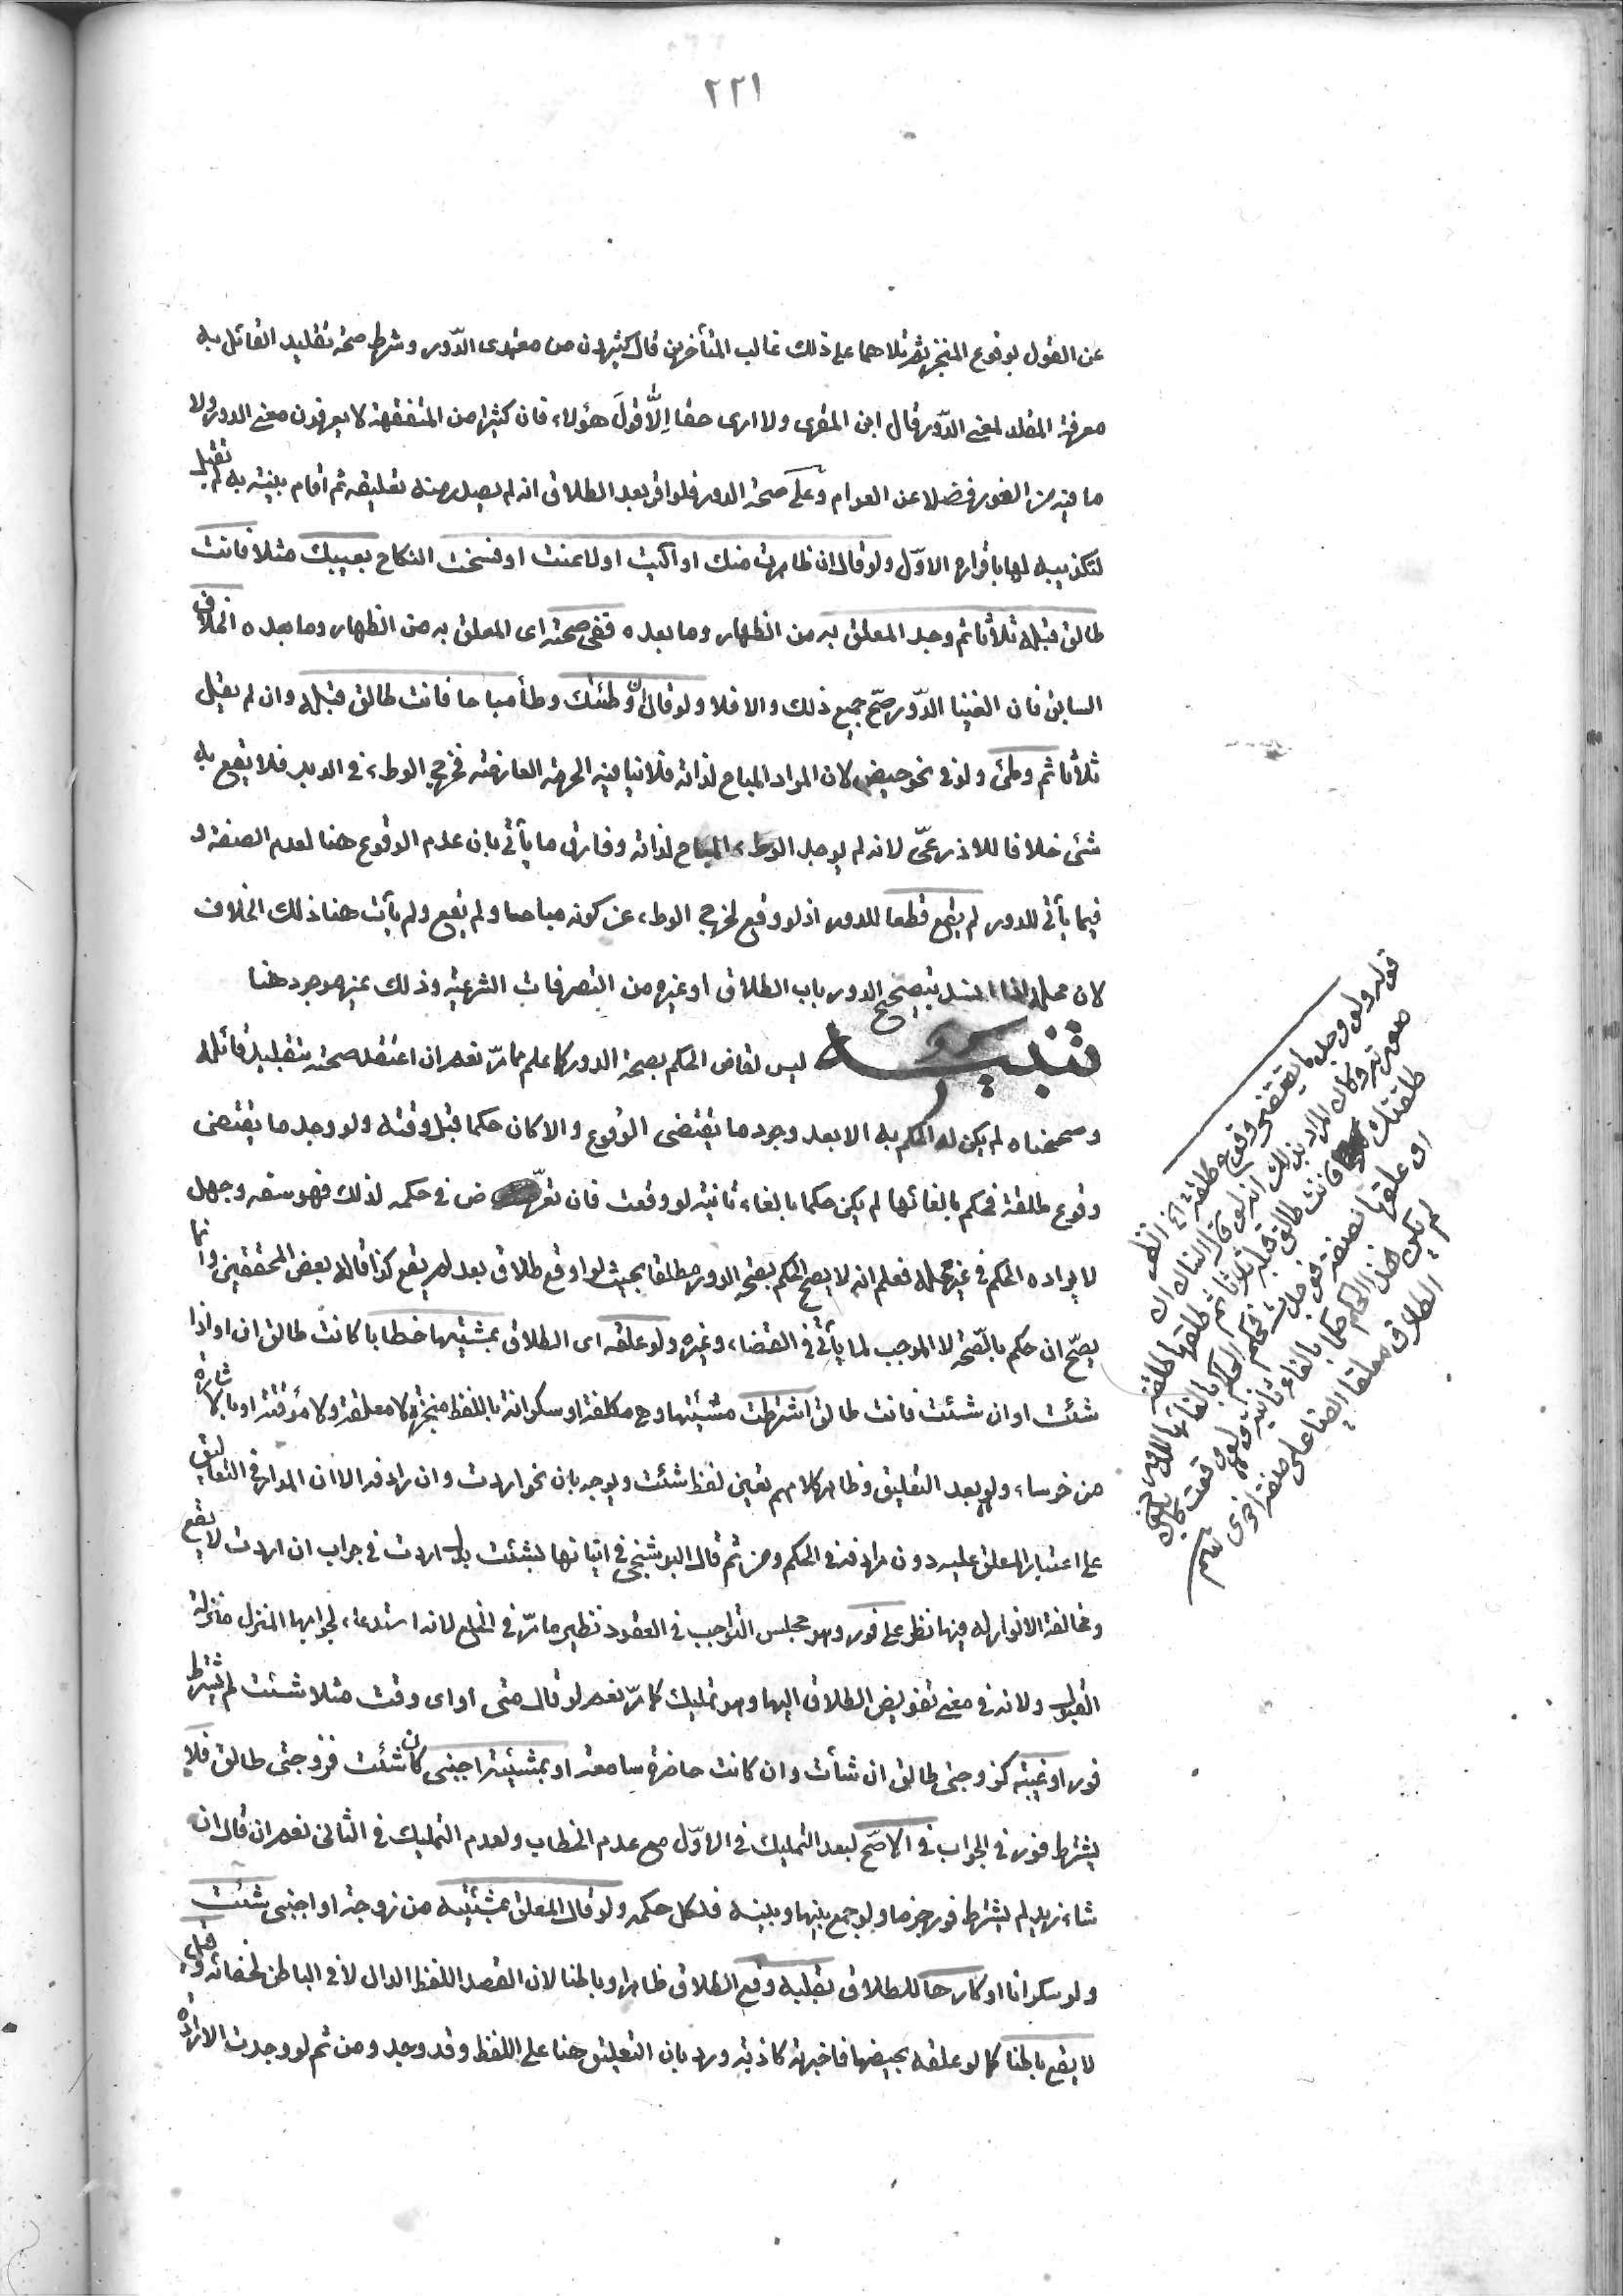 ٢٢١
عن القول بوقوع المنجز ثم تلاهما على ذلك غالب المتأخرين قال كثيرون من معتمدى الدّور وشرط صحة تقليد القائل به
معرفة المقلد لمعنى الدّور قال ابن المقرى ولا ارى حقا اِلَّا قولَ هؤلاء فان كثيرا من المتفقهة لا يعرفون معنى الدور ولا
ما فيه من الغور فضلا عن العوام وعلى صحة الدور فلو اقر بعد الطلاق انه لم يصدر منه تعليقه ثم اقام بينة به لم تقبل
لتكذيبه لها باقراره الاوّل ولو قال ان ظاهرت منك او آليت او لاعنت او فسخت النكاح بعيبك مثلا فانت
طالق قبله ثلاثا ثم وجد المعلق به من الظهار وما بعده ففى صحته اى المعلق به من الظهار وما بعده الخلاف
السابق فان الغينا الدّور صحّ جميع ذلك والا فلا ولو قال ان وطئتك وطأ مباحا فانت طالق قبله وان لم يقل
ثلاثا ثم وطئ ولو فى نحو حيض لان المراد المباح لذاته فلا تنافيه الحرمة العارضة فخرج الوطء فى الدبر فلا يقع به
شئ خلافا للاذرعىّ لانه لم يوجد الوطء المباح لذاته وفارق ما يأتى بان عدم الوقوع هنا لعدم الصفة و
فيما يأتى للدور لم يقع قطعا للدور اذ لو وقع لخرج الوطء عن كونه مباحا ولم يقع ولم يأت هنا ذلك الخلاف
لان محله اذا انسد بتصحيح الدور باب الطلاق او غيره من التصرفات الشرعية وذلك غير موجود هنا
تنبيه ليس لقاض الحكم بصحة الدور كما علم مما مرّ نعم ان اعتقد صحته بتقليد قائله
وصححناه لم يكن له الحكم به الا بعد وجود ما يقتضى الوقوع والا كان حكما قبل وقته ولو وجد ما يقتضى
وقوع طلقة فحكم بالغائها لم يكن حكما بالغاء ثانية لو وقعت فان تعرّض فى حكمه لذلك فهو سفه وجهل
لا يراده الحكم فى غير محله فعلم انه لا يصح الحكم بصحة الدور مطلقا بحيث لو اوقع طلاق بعد لم يقع كذا قاله بعض المحققين وانما
يصحّ ان حكم بالصّحة لا الموجب لما يأتى فى القضاء وغيره ولو علقه اى الطلاق بمشيئتها خطابا كانت طالق ان او اذا
شئت او ان شئت فانت طالق اشترطت مشيئتها وهى مكلفة او سكرانة باللفظ منجزة لا معلقة ولا مؤقتة او بالاشارة
من خرساء ولو بعد التعليق وظاهر كلامهم تعين لفظ شئت ويوجه بان نحو اردت وان رادفه الا ان المدار فى التعاليق
على اعتبار المعلق عليه دون مرادفه فى الحكم ومن ثم قال البوشنجى فى اتيانها بشئت بدل اردت فى جواب ان اردت لا يقع
ومخالفة الانوار له فيها نظر على فور وهو مجلس التواجب فى العقود نظير ما مرّ فى الخلع لانه استدعاء لجوابها المنزل منزلة
القبول ولانه فى معنى تفويض الطلاق اليها وهو تمليك كما مرّ نعم لو قال متى او اى وقت مثلا شئت لم يشترط
فور او غيبة كزوجتى طالق ان شأت وان كانت حاضرة سامعة او بمشيئة اجنبى كان شئت فزوجتى طالق فلا
يشترط فور فى الجواب فى الاصّح لبعد التمليك فى الاوّل مع عدم الخطاب ولعدم التمليك فى الثانى نعم ان قال ان
شاء زيد لم يشترط فور جزما ولو جمع بينها وبينه فلكل حكمه ولو قال المعلق بمشيئته من زوجة او اجنبى شئت
ولو سكرانا او كارها للطلاق بقلبه وقع الطلاق ظاهرا وباطنا لان القصد اللفظ الدال لا فى الباطن لخفائه وقيل
لا يقع باطنا كما لو علقه بحيضها فاخبرته كاذبة ورد بان التعليق هنا على اللفظ وقد وجد ومن ثم لو وجدت الارادة
قوله ولو وجد ما يقتضى وقوع طلقة الخ انظر
صورته وكان المراد بذلك انه لو قال ان
طلقتك فانت طالق قبله ثلاثا ثم طلقها طلقة
او علقها بصفة فوجدت فحكم الحاكم بالغائها للدور
لم يكن هذا الحكم حكما بالغاء ثانية لو وقعت كان
الطلاق معلقا ايضا على صفة اخرى سم